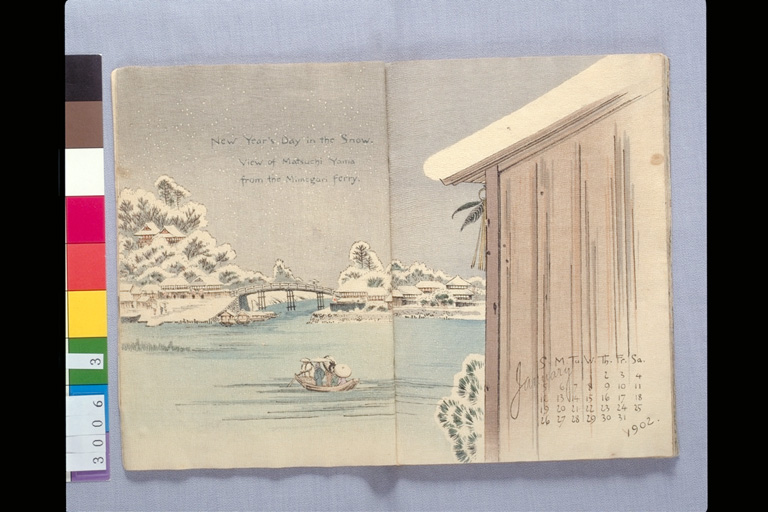 New Year's Day in the Snow.
View of Matsuchi Yama
from the Ferry.
January
S. M. Tu. W. Th. Fr. Sa.
2 3 4
6 7 8 9 10 11
12 13 14 15 16 17 18
19 20 21 22 23 24 25
26 27 28 29 30 31
1902.
3006 3